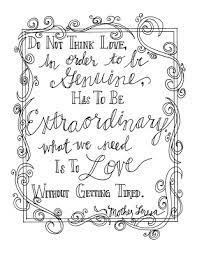 Do Not Think Love,
in order to be
Genuine,
Has To Be
Extraordinary.
what we need
Is To Love
Without Getting Tired.
~Mother Teresa